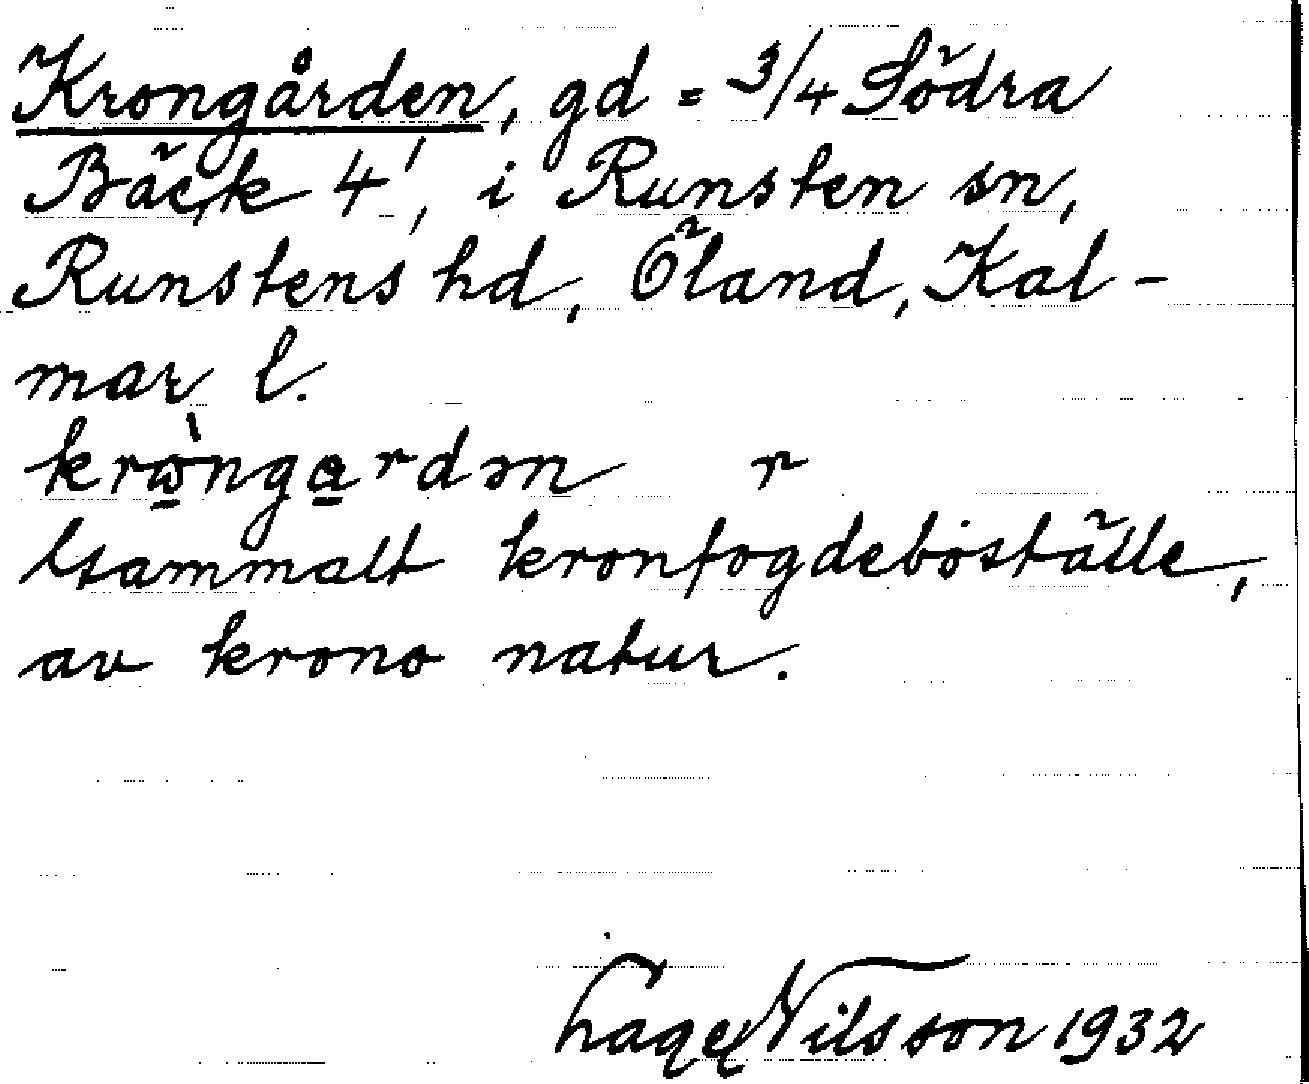 Krongården, gd = 3/4 Södra
Bäck 4', i Runsten sn,
Runstens hd, Öland, Kal-
mar l.
krὼngardən r
Gammalt kronfogdeboställe,
av krono natur.
Nilsson 1932